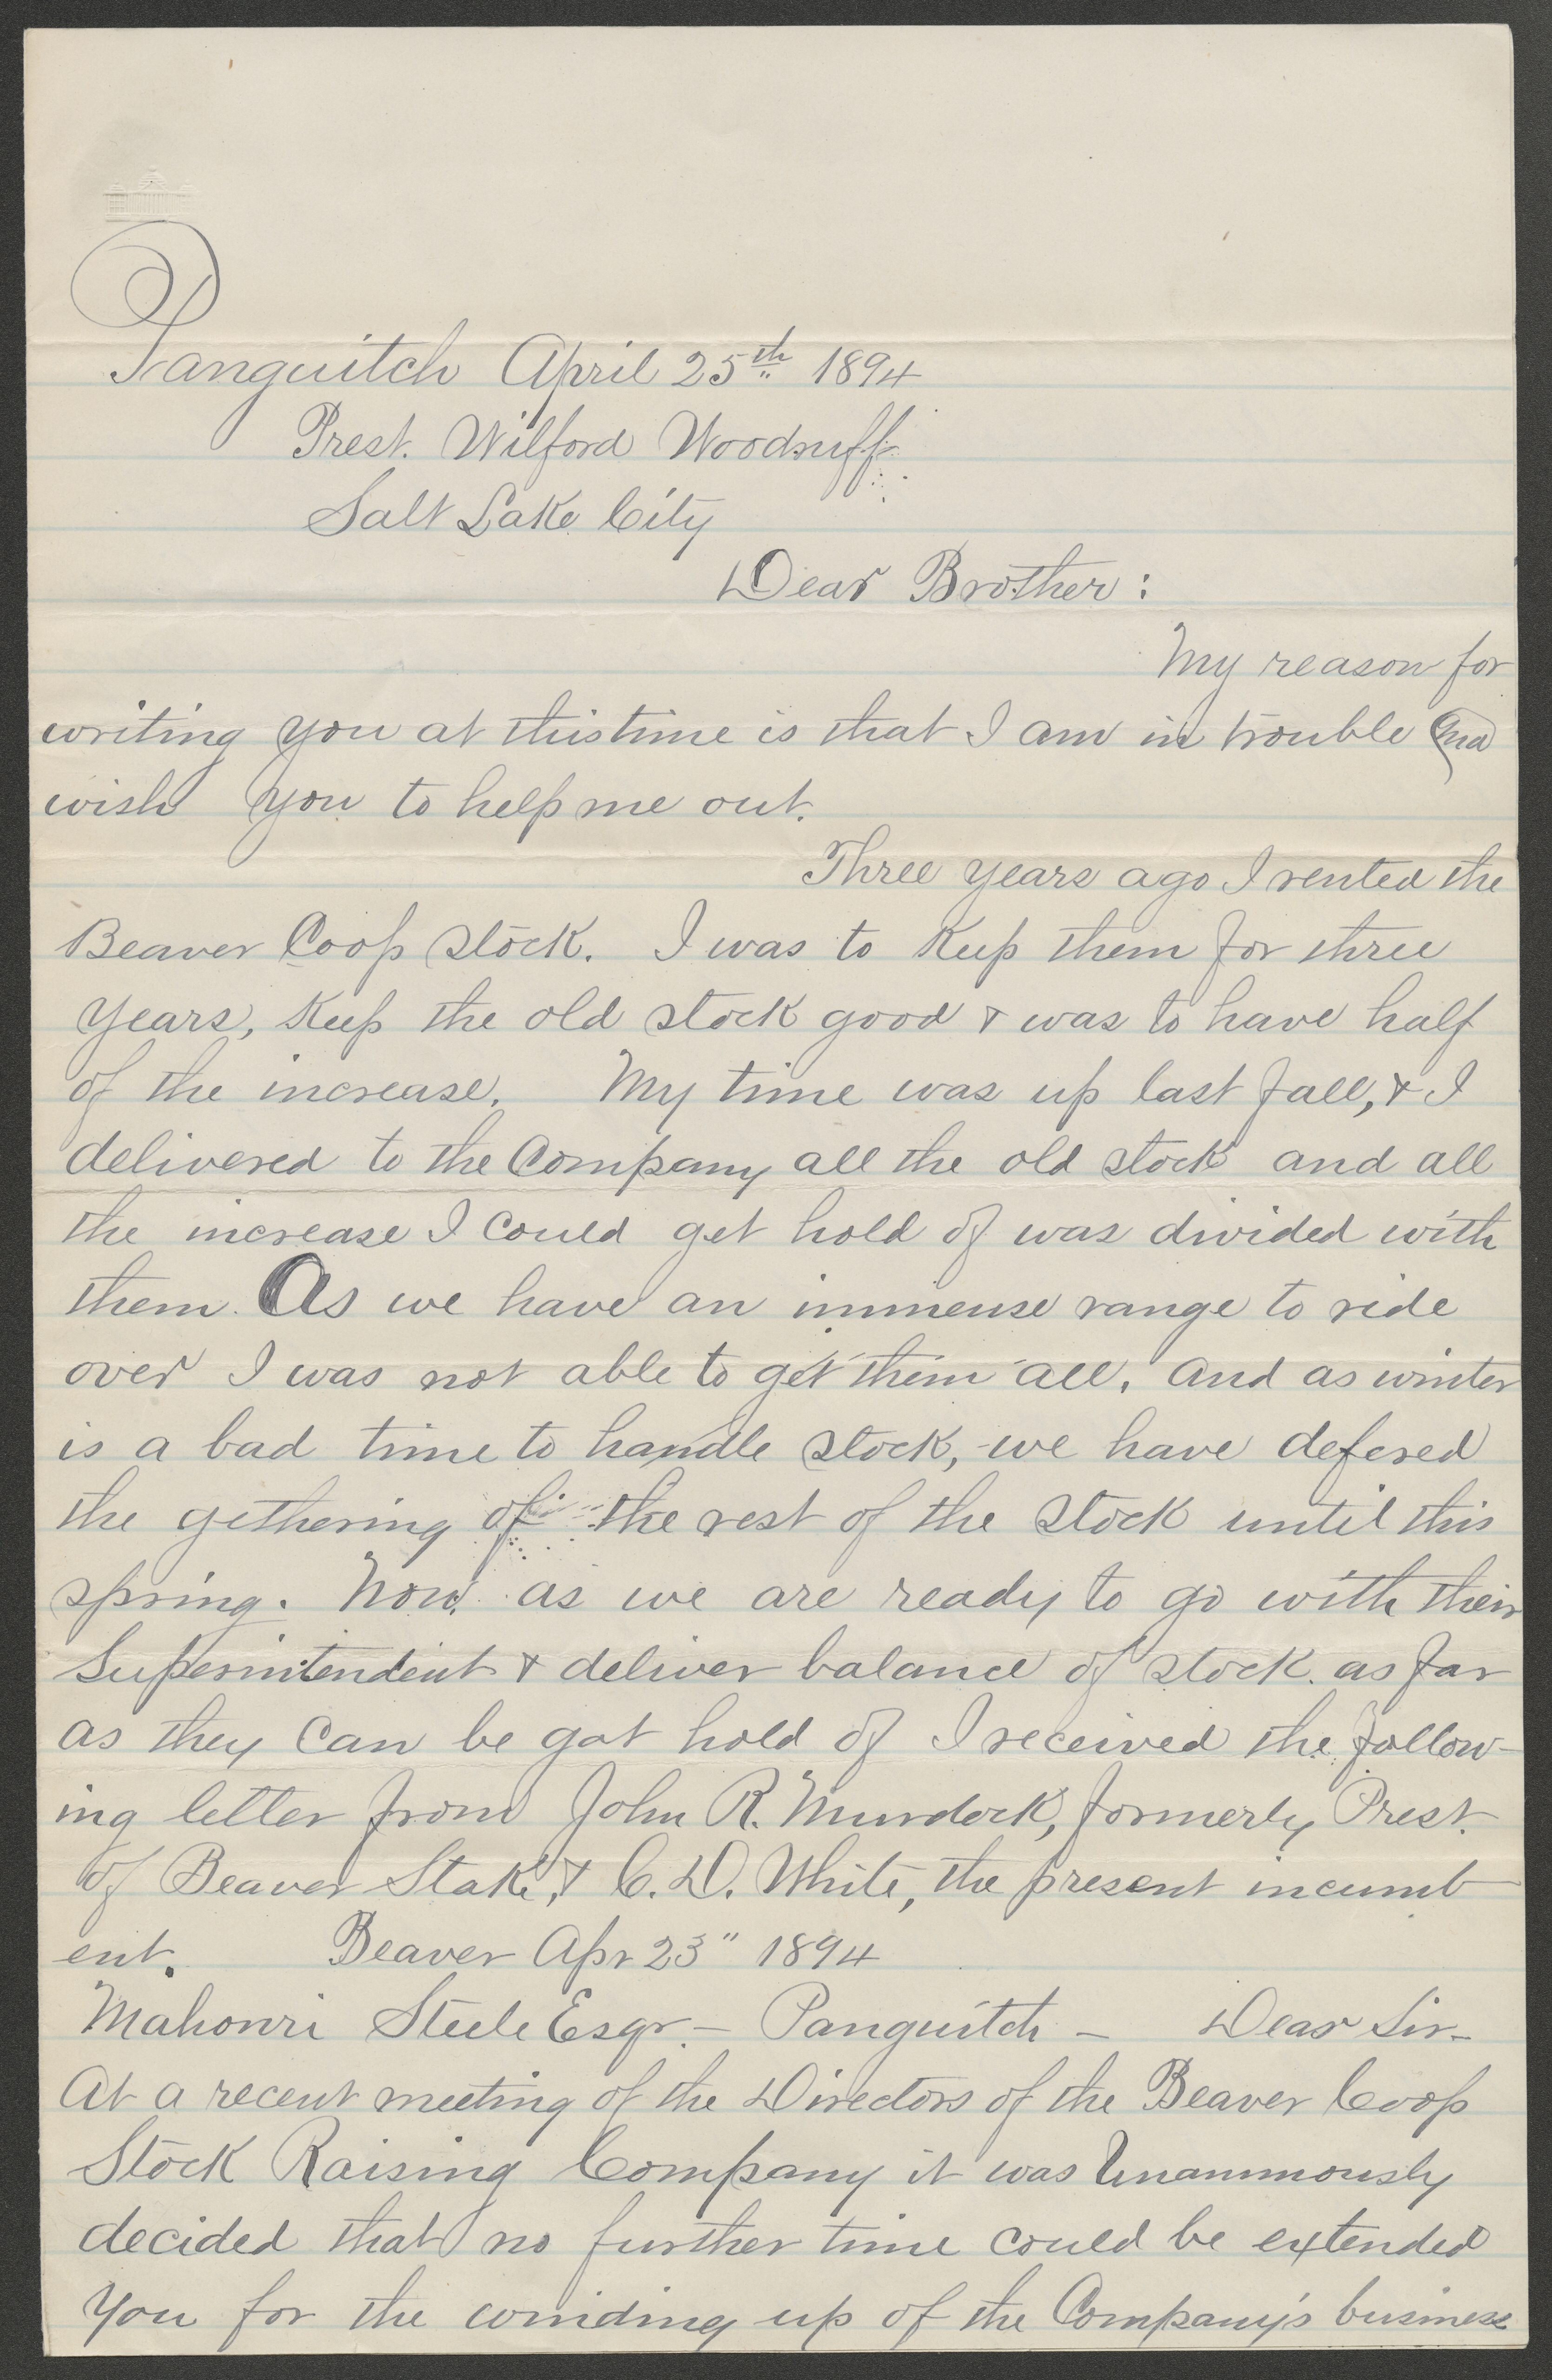 Panguitch April 25th 1894
Prest. Wilford Woodruff
Salt Lake City
Dear Brother:
My reason for
writing you at this time is that I am in trouble and
wish you to help me out.
Three years ago I rented the
Beaver Coop Stock. I was to Keep them for three
years, Keep the old stock good & was to have half
of the increase. My time was up last fall, & I
delivered to the Company all the old stock and all
the increase I could get hold of was divided with
them. As we have an immense range to ride
over I was not able to get them all. and as winter
is a bad time to handle stock, we have defered
the gethering of the rest of the stock until this
spring. Now as we are ready to go with their
Superintendent & deliver balance of stock. as far
as they can be got hold of I received the follow-
ing letter from John R. Murdock, formerly Prest.
of Beaver Stake, & C. D. White, the present incumb
ent. Beaver Apr 23" 1894
Mahonri Steele Esqr. - Panguitch - Dear Sir -
At a recent meeting of the Directors of the Beaver Coop
Stock Raising Company it was Unanimously
decided that no further time could be extended
you for the winding up of the Company's business